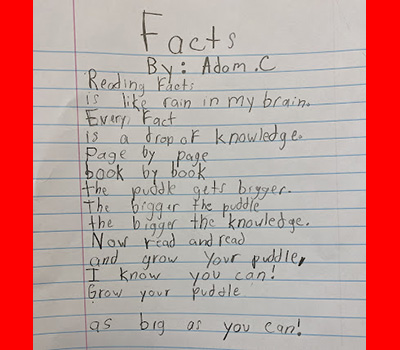 Facts
By: Adom.C
Reading Facts
is like rain in my brain.
Every Fact
is a drop of knowledge.
Page by page
book by book
the puddle gets bigger.
The bigger the puddle
the bigger the knowledge.
Now read and read
and grow your puddle,
I know you can!
Grow your puddle
as big as you can!